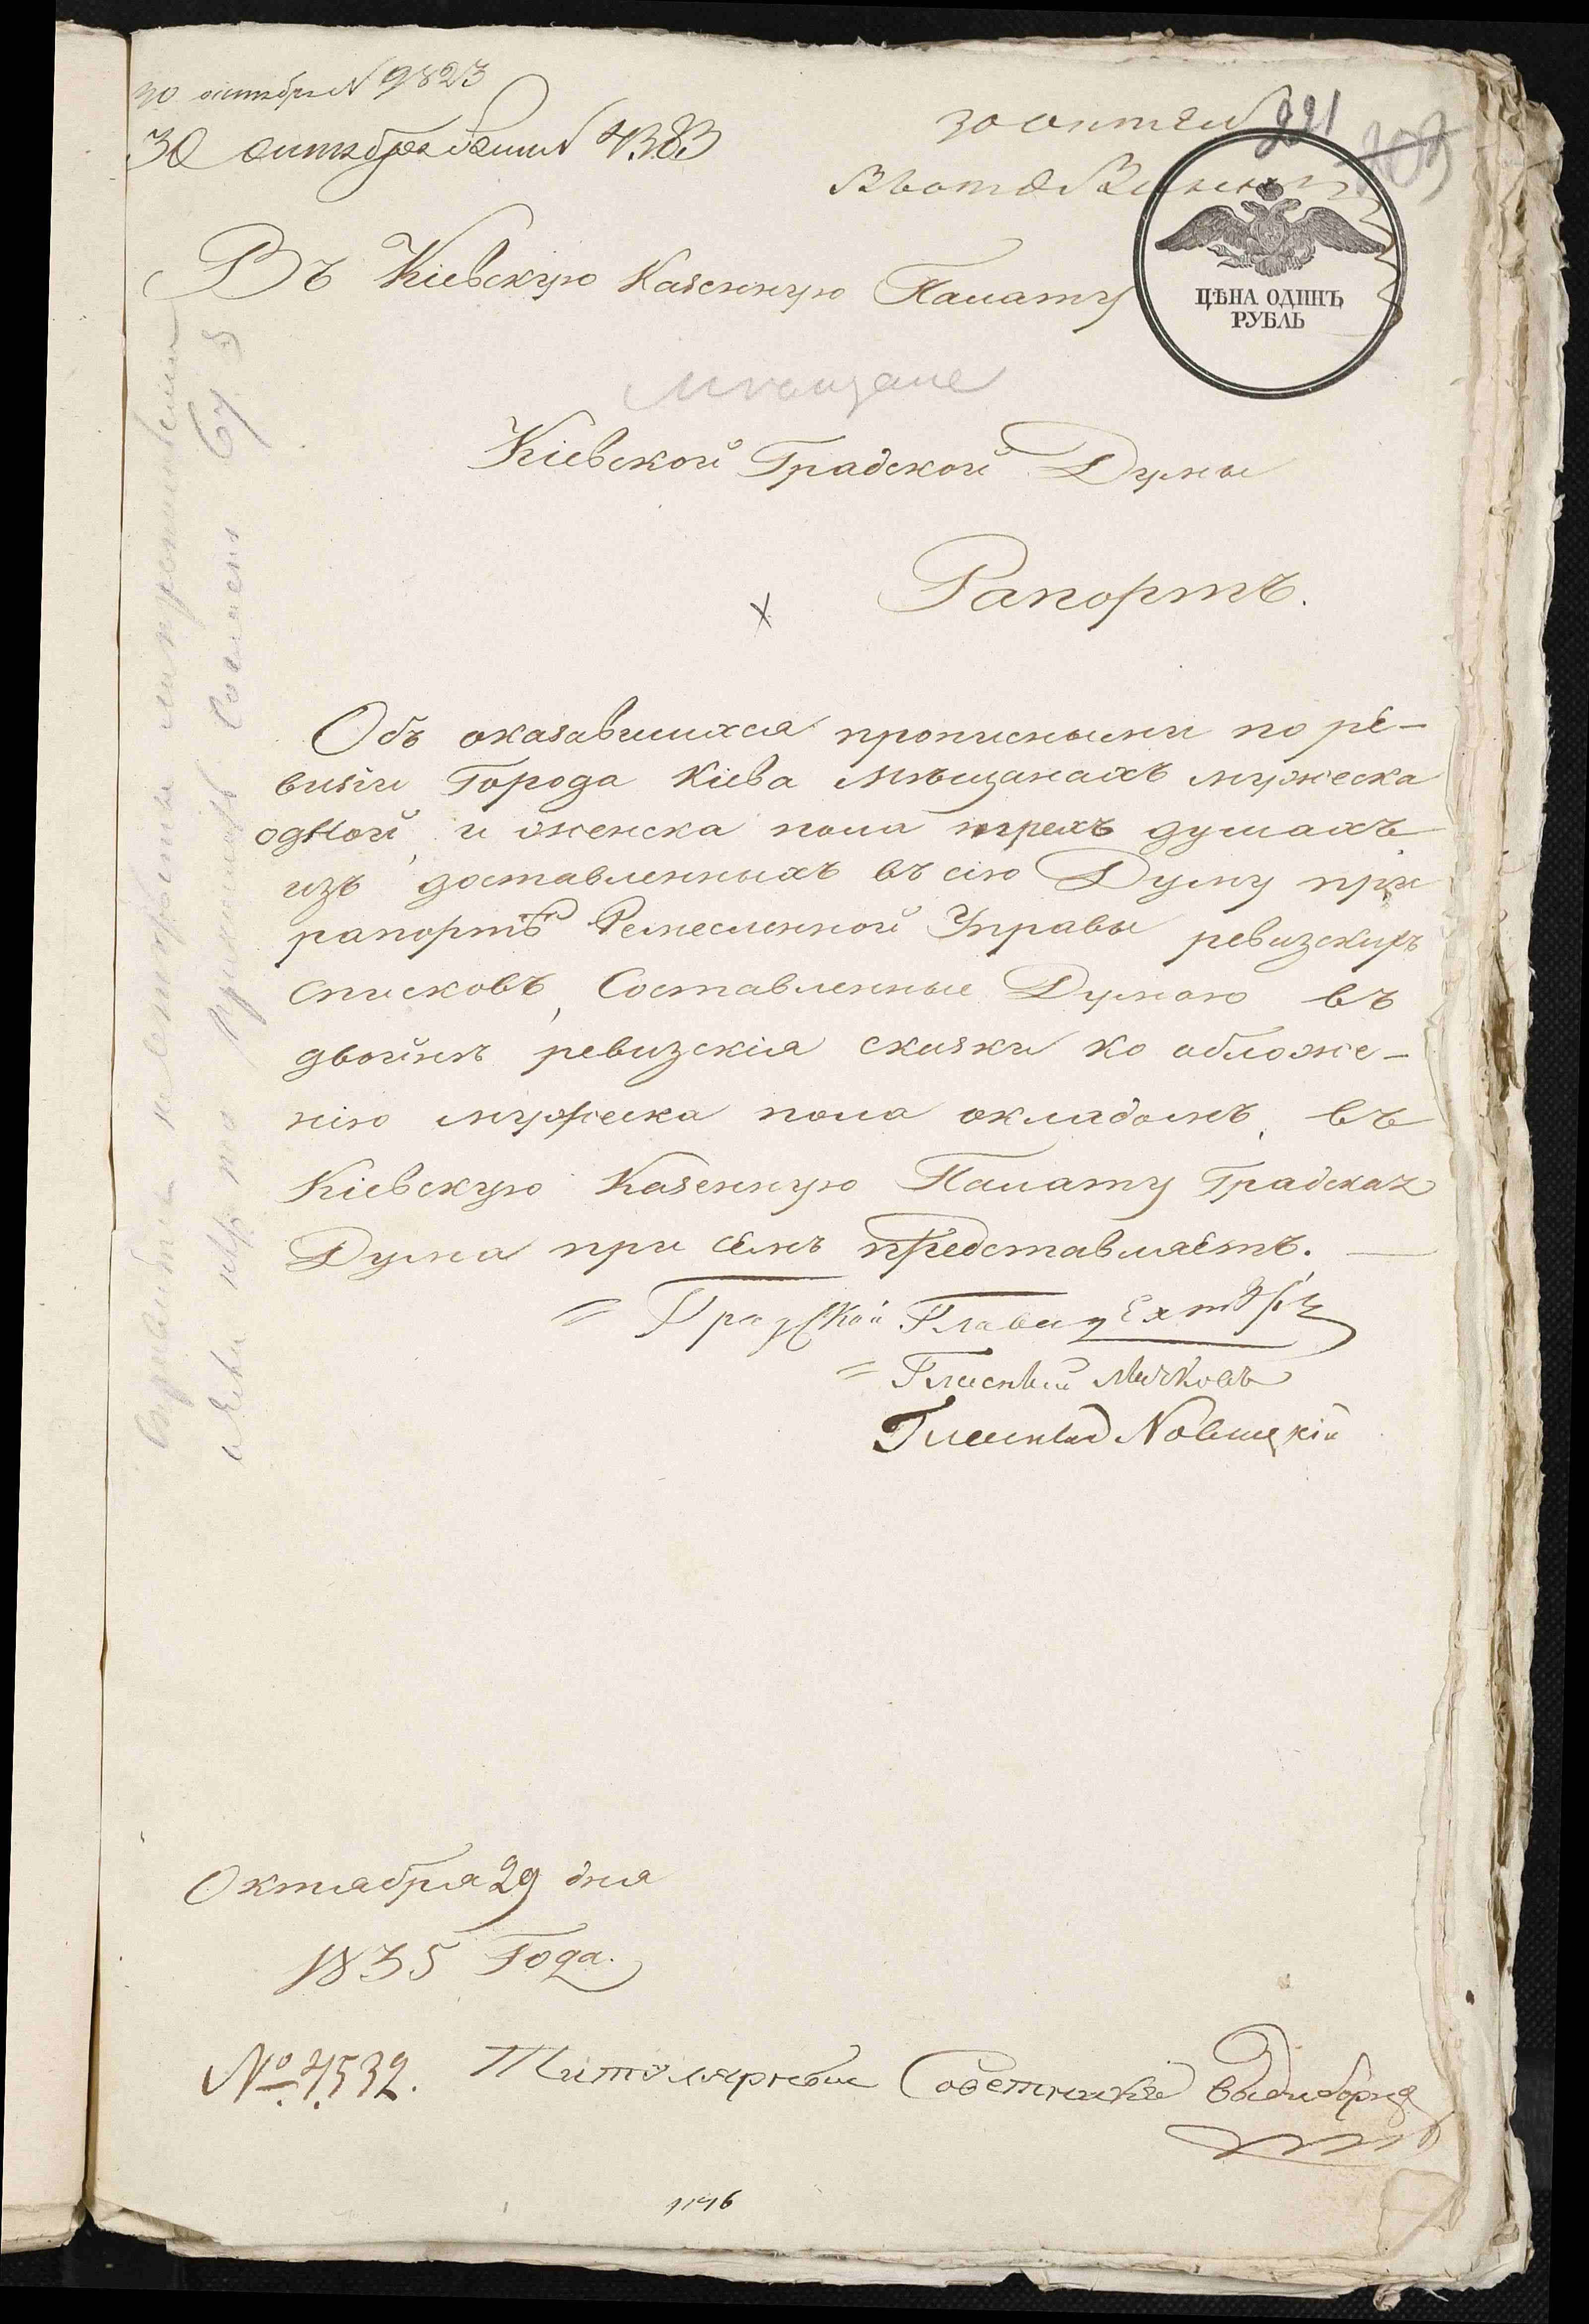 30 октября N 9823
30 октября N 4383
30 октяб
221
203
ЦѢНА ОДИНЪ
РУБЛЬ
Въ Кіевскую Казенную Палату
Мѣщане
Кіевской Градской Думы
Рапортъ.
Объ оказавшихся прописными по ре-
визіи Города Кіева Мѣщанахъ мужеска
одной, и женска пола трехъ душахъ
изъ доставленныхъ въ сію Думу при
рапортѣ Ремесленной Управы ревизскихъ
списковъ, Составленные Думою въ
двойнѣ ревизскія сказки ко обложе-
нію мужеска пола окладомъ, въ
Кіевскую Казенную Палату Градская
Дума при семъ представляетъ.
Градской Глава
Гласный
Гласный Новицкій
Октября 29 дня
1835 Года.
№ 4532. Титулярный Советникъ
1146